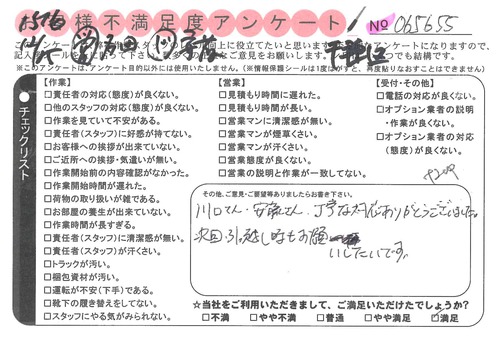 様不満足度アンケート！
No 065655
※このアンケートは、アンケート目的以外には使用いたしません。（※情報保護シールは1度はがすと、再度貼りなおすことはできません）
チェックリスト
【作業】
□責任者の対応(態度)が良くない。
□他のスタッフの対応(態度)が良くない。
□作業を見ていて不安がある。
□責任者(スタッフ)に好感が持てない。
□お客様への挨拶が出来ていない。
□ご近所への挨拶・気遣いが無い。
□作業開始前の内容確認がなかった。
□作業開始時間が遅れた。
□荷物の取り扱いが雑である。
□お部屋の養生が出来ていない。
□作業時間が長すぎる。
□責任者(スタッフ)に清潔感が無い。
□責任者(スタッフ)が汗くさい。
□トラックが汚い。
□梱包資材が汚い。
□運転が不安(下手)である。
□靴下の履き替えをしてない。
□スタッフにやる気がみられない。
【営業】
□見積もり時間に遅れた。
□見積もり時間が長い。
□営業マンに清潔感が無い。
□営業マンが煙草くさい。
□営業マンが汗くさい。
□営業態度が良くない。
□営業の説明と作業が一致してない。
【受付・その他】
□電話の対応が良くない。
□オプション業者の説明
・作業が良くない。
□オプション業者の対応
(態度)が良くない。
その他、ご意見・ご要望等ありましたらお書き下さい。
川口さん、安斎さん、丁寧な対応ありがとうございました。
次回、引っ越し時もお願
いしたいです。
☆当社をご利用いただきまして、ご満足いただけたでしょうか？
□不満 □やや不満 □普通 □やや満足 □満足